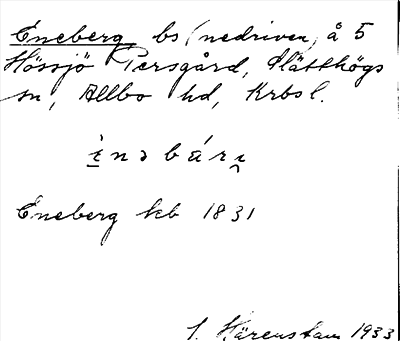 Eneberg bs (nedriven) å 5
Hössjö Persgård, Slätthögs
sn, Allbo hd, Krbs l.
i̠nəbárı̯
Eneberg kb 1831
J. Härenstam 1933